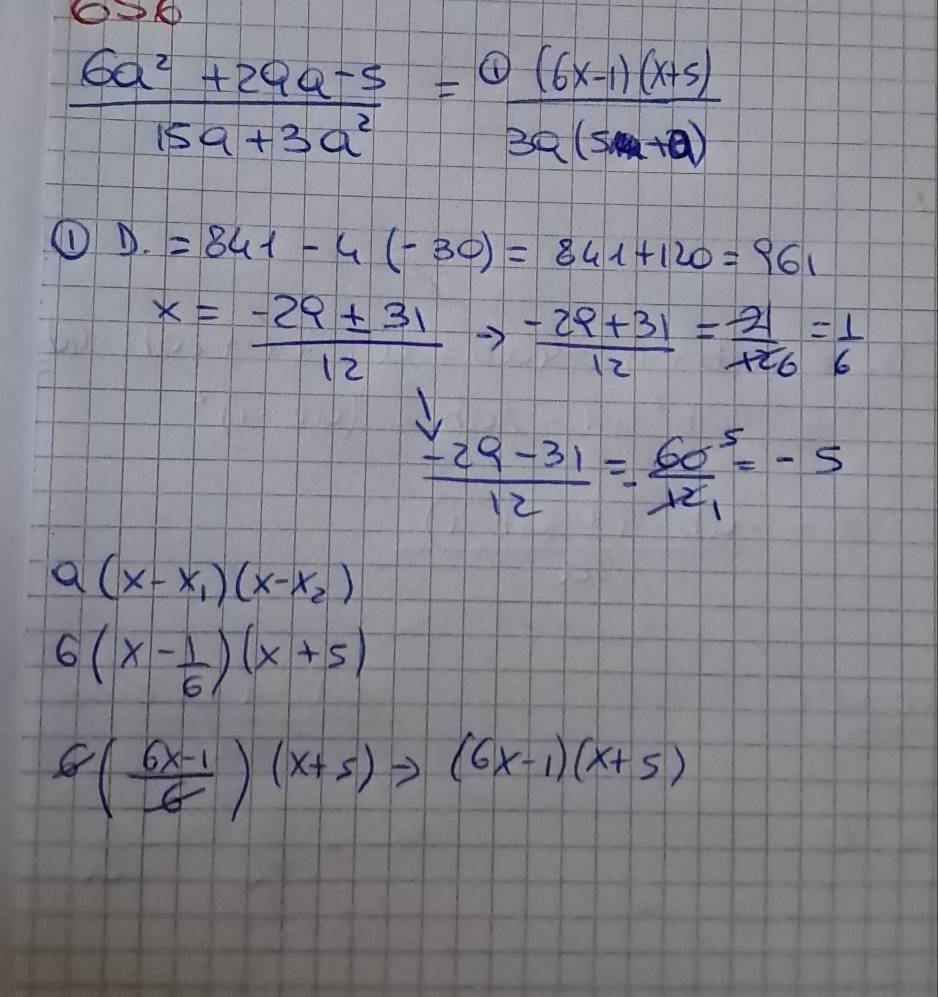 656
6a² + 29a - 5 / 15a + 3a² = ① (6x-1)(x+5) / 3a(5+a)
① D. = 841 - 4(-30) = 841+120 = 961
x = -29 ± 31 / 12 → -29+31 / 12 = 21 / 126 = 1 / 6
↓
-29-31 / 12 = - 60⁵ / 12₁ = - 5
a(x-x₁)(x-x₂)
6(x - 1/6)(x + 5)
6(6x-1 / 6)(x+5) → (6x-1)(x+5)